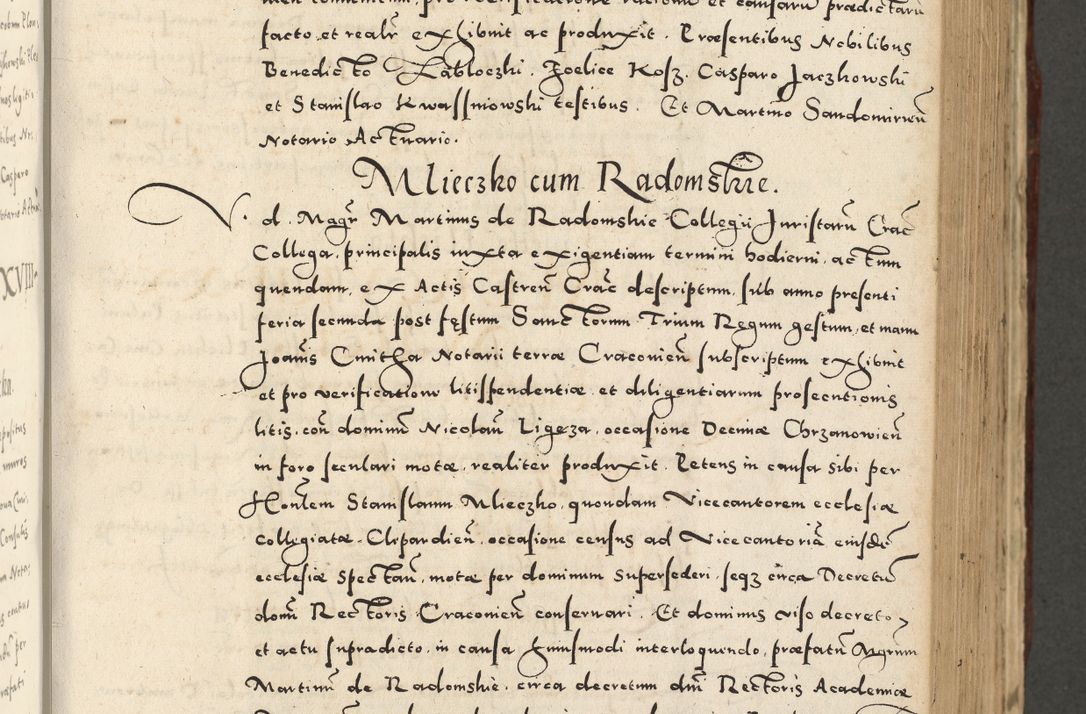 facto et realr exhibuit ac produxit. Præsentibus Nobilibus
Benedicto Zabloczki. Foelice Kosz. Casparo Jaczkowski
et Stanislao Kwassniowski testibus. Et Martino Sandomirień
Notario Actuario.
Mlieczko cum Radomskie.
V. d. Magr Martinus de Radomskie Collegii Juristarũ Crać
Collega, principalis iuxta exigentiam termini hodierni, actum
quendam, ex Actis Castreń Crać descriptum, sub anno presenti
feria secunda post fęstum Sanctorum Trium Regum gestum, et manu
Joañis Cmitha Notarii terræ Craconień subscriptum exhibuit
et pro verificatione litispendentiæ et diligentiarum prosecutionis
litis, coñ dominũ Nicolaũ Ligeza, occasione Decimæ Chrzanowień
in foro seculari motæ, realiter produxit. Petens in causa sibi per
Honlem Stanislaum Mlieczko, quondam Vicecantorem ecclesiæ
collegiatæ Clipardień, occasione census ad Vicecantoriã eiusdẽ
ecclesiæ spectañ, motæ per dominum supersederi, seqz circa Decretũ
domĩ Rectoris Craconień conseruari. Et dominus viso decreto,
et actu supradicto, in causa huiusmodi interloquendo, præfatũ Mgrum
Martinũ de Radomskie, circa decretum dñi Rectoris Academiæ